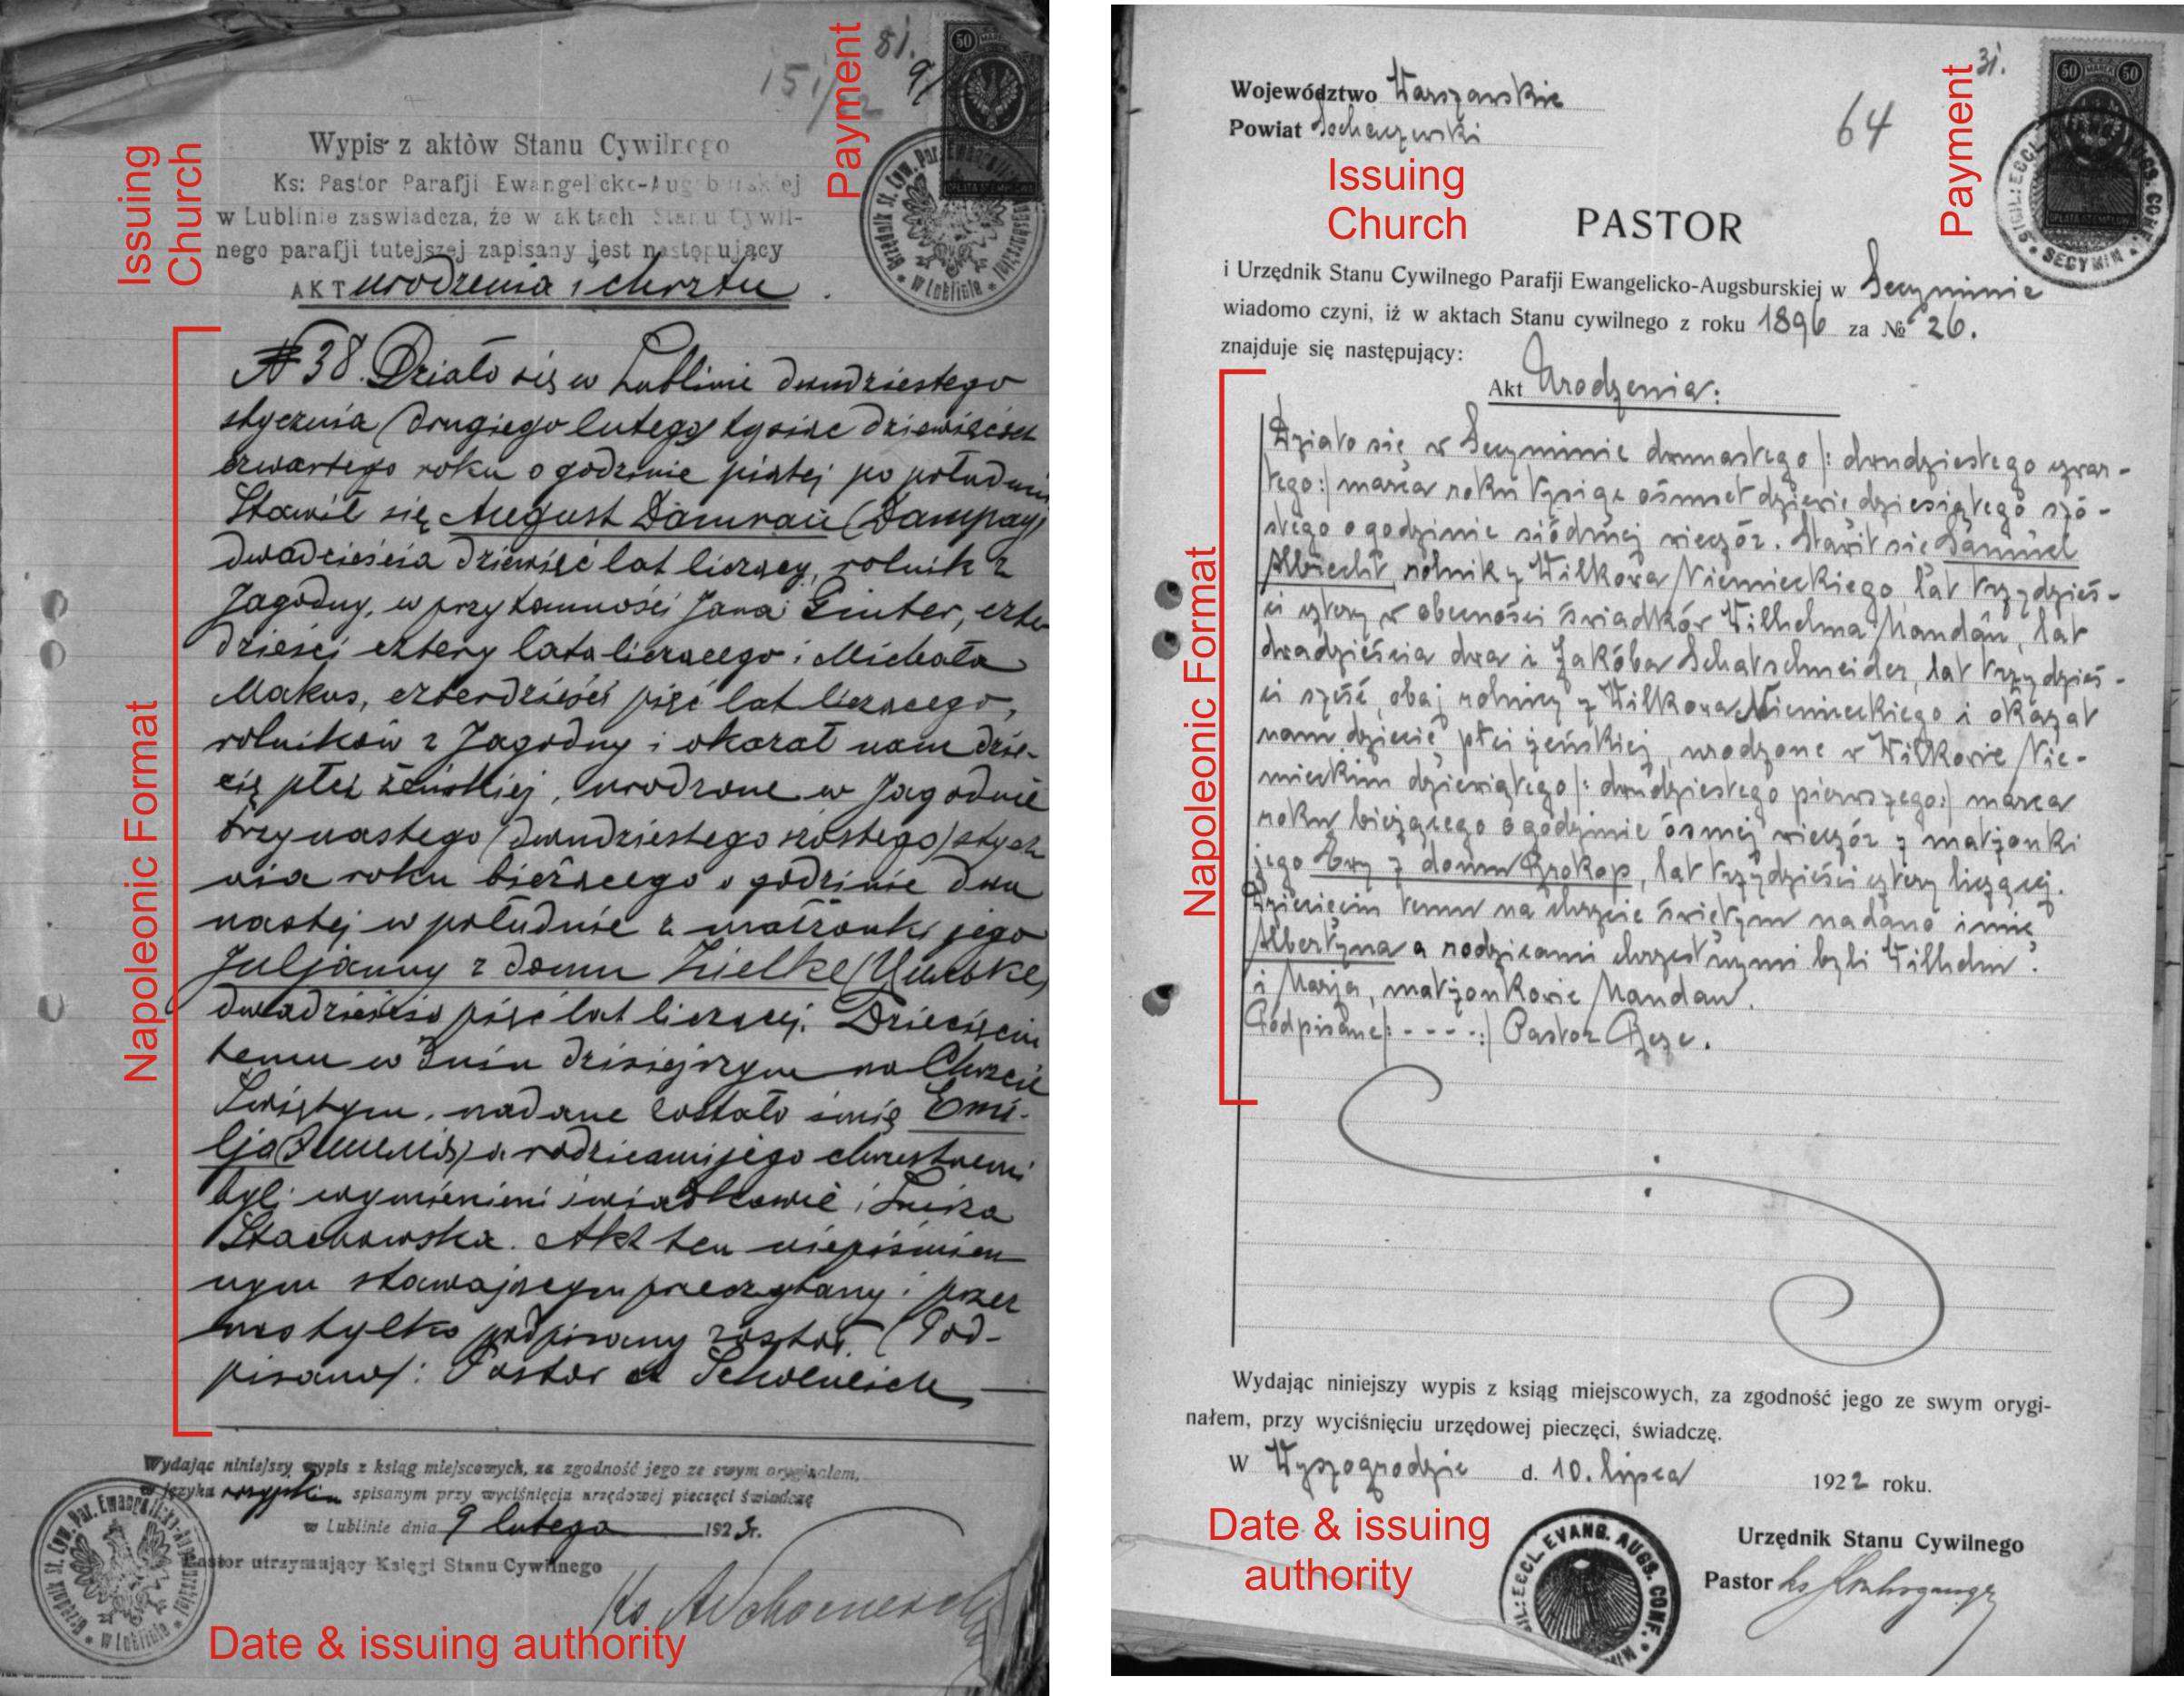 Issuing
Church
Payment
81.
9/
151/22
50
Wypis z aktòw Stanu Cywilnego
Ks: Pastor Parafji Ewangelicko-Augsburskiej
w Lublinie zaswiadcza, że w aktach Stanu Cywil-
nego parafji tutejszej zapisany jest następujący
AKT urodzenia i chrztu
Napoleonic Format
N 38. Działo się w Lublinie dwudziestego
stycznia (drugiego lutego) tysiąc dziewięćset
czwartego roku o godzinie piątej po południu
Stawił się August Damrau (
dwadzieścia dziewięć lat liczący, rolnik z
Jagodny, w przytomności Jana Ginter, czter
dzieści cztery lata liczącego i Michała
Makus, czterdzieści pięć lat liczącego,
rolników z Jagodny i okazał nam dzie-
cię płci żeńskiej, urodzone w Jagodnie
trzynastego (dwudziestego szóstego) stycz
nia roku bieżącego o godzinie dwu
nastej w południe z małżonki jego
Juljanny z domu Zielke
dwadzieścia pięć lat liczącej. Dziecięciu
temu w dniu dzisiejszym na Chrzcie
Świętym, nadane zostało imię Emi-
lja a rodzicami jego chrzestnemi
byli wymienieni świadkowie i Luiza
Stachowska. Akt ten niepiśmien
nym stawającym przeczytany i przez
nas tylko podpisany został. (Pod-
pisano): Pastor
Wydając niniejszy wypis z ksiąg miejscowych, za zgodność jego ze swym oryginałem,
w języku rosyjskim spisanym przy wyciśnięciu urzędowej pieczęci świadczę
w Lublinie dnia 9 lutego 1923 r.
Pastor utrzymujący Księgi Stanu Cywilnego
Date & issuing authority
31.
64
Payment
50 MAREK 50
Województwo Warszawskie
Powiat Sochaczewski
Issuing
Church
PASTOR
SECYMIN
i Urzędnik Stanu Cywilnego Parafji Ewangelicko-Augsburskiej w Secyminie
wiadomo czyni, iż w aktach Stanu cywilnego z roku 1896 za № 26.
znajduje się następujący:
Akt Urodzenia:
Napoleonic Format
Działo się w Secyminie dwunastego /: dwudziestego czwar-
tego:/ marca roku tysiąc ośmset dziewiedziesiątego szó-
stego o godzinie siódmej wieczór. Stawił się Samuel
Albrecht, rolnik z Wilkowa Niemieckiego lat trzydzieś-
ci cztery w obecności świadków Wilhelma Mandau, lat
dwadzieścia dwa i Jakóba Schatschneider, lat trzydzieś-
ci sześć, obaj rolnicy z Wilkowa Niemieckiego i okazał
nam dziecię płci żeńskiej, urodzone w Wilkowie Nie-
mieckim dziewiątego /: dwudziestego pierwszego:/ marca
roku bieżącego o godzinie ósmej wieczór z małżonki
jego Ewy z domu Prokop, lat trzydzieści cztery liczącej.
Dziecięciu temu na chrzcie świętym nadano imię
Albertyna a rodzicami chrzestnymi byli Wilhelm
i Marja, małżonkowie Mandau.
Podpisane /: - - - - :/ Pastor
Wydając niniejszy wypis z ksiąg miejscowych, za zgodność jego ze swym orygi-
nałem, przy wyciśnięciu urzędowej pieczęci, świadczę.
W Wyszogrodzie d. 10. lipca 1922 roku.
Date & issuing
authority
ECCL. EVANG. AUGS. CONF.
Urzędnik Stanu Cywilnego
Pastor